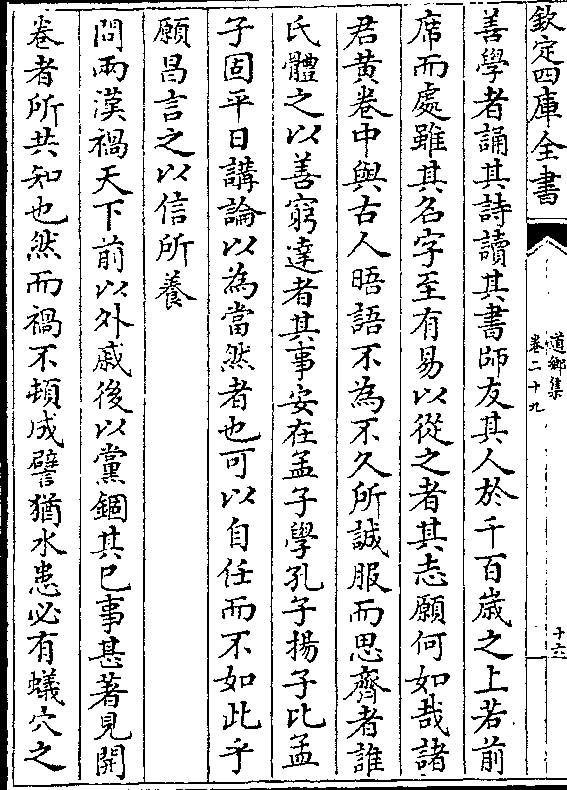 欽定四庫全書
道鄉集
卷二十九
十六
善學者誦其詩讀其書師友其人於千百歲之上若前
席而處雖其名字至有易以從之者其志願何如哉諸
君黃卷中與古人晤語不為不久所誠服而思齊者誰
氏體之以善窮達者其事安在孟子學孔子揚子比孟
子固平日講論以為當然者也可以自任而不如此乎
願昌言之以信所養
問兩漢禍天下前以外戚後以黨錮其已事甚著見開
卷者所共知也然而禍不頓成譬猶水患必有蟻穴之